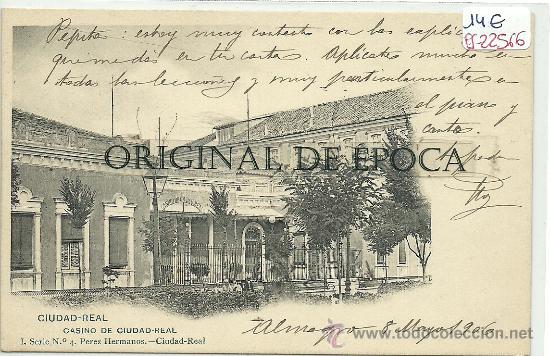 14€
PJ-22566
Pepita: estoy muy contento con las explica
que me dás en tu carta. Aplicate mucho en
todas las lecciones y muy particularmente a
al piano y
canto.
ORIGINAL DE ÉPOCA
CIUDAD-REAL
CASINO DE CIUDAD-REAL
I. Serie N.º 4. Perez Hermanos.—Ciudad-Real
Almagro 8 Mayo 1906
todocoleccion.net